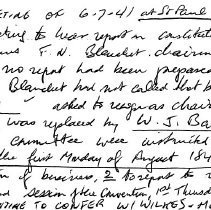 ETING OF 6-7-41 at St Paul
to hear report on constitu
T. N. Blanchet chairm
no report had been prepare
Blanchet had not called that b
asked to resign as chair
was replaced by W. J. Ba
committee were instructed
the first Monday of August 184
of business, 2 to report to
session of the Convention, 1st Thursd
TO CONFER W/ WILKES-M